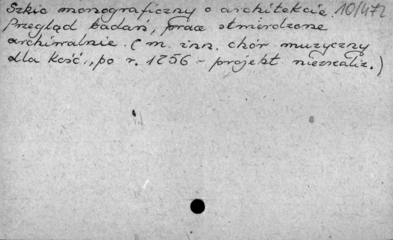 Szkic monograficzny o architekcie. 10/472
Przegląd badań, prace stwierdzone
archiwalnie. (m. inn. chór muzyczny
dla kość., po r. 1756 - projekt niezrealiz.)